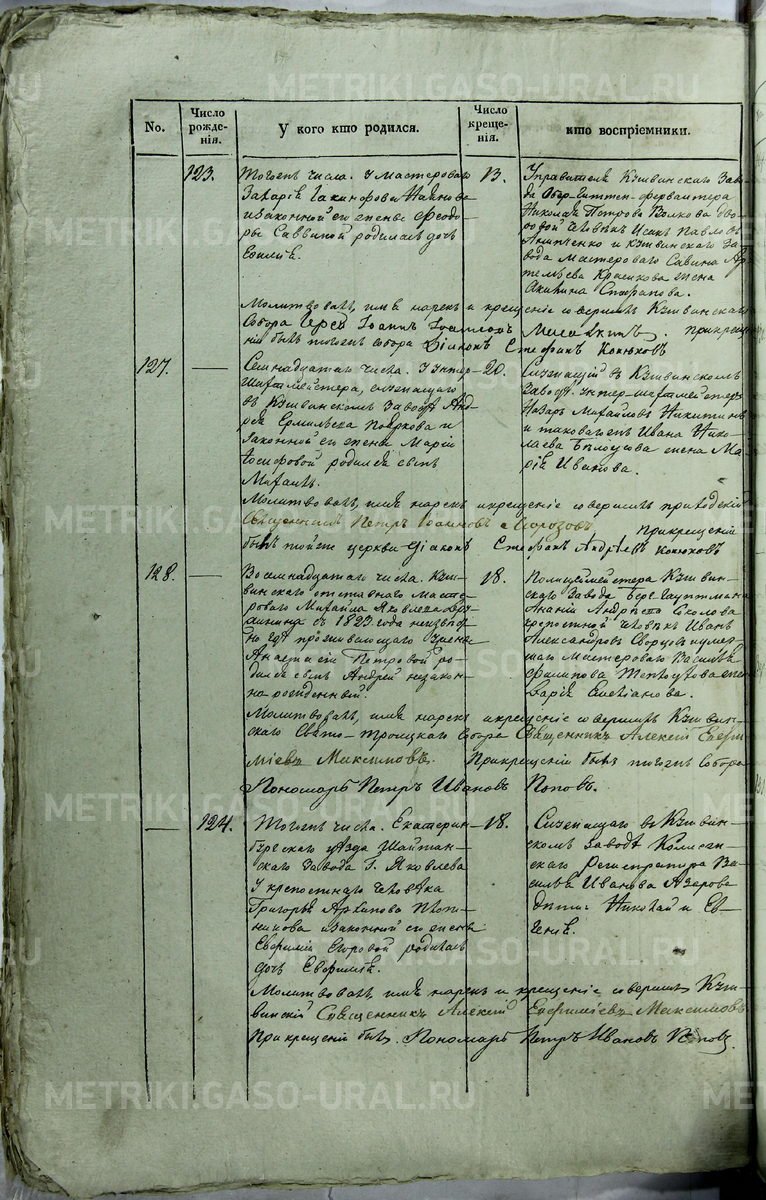 METRIKI.GASO-URAL.RU
No.
Число рожденія.
У кого кто родился.
Число крещенія.
кто воспріемники.
123.
Тогожъ числа. У мастероваго
Захарія
и законной его жены Ѳеодо-
ры Саввиной родилась дочь
13.
Управителя Кушвинскаго Заво-
да Обер-Гиттен-фервалтера
Николая Петрова Волкова дво-
ровой человѣкъ Исакъ Павловъ
и Кушвинскаго За-
вода мастероваго Савина Ар-
темьева жена
Акилина
Молитвовалъ, имя нарекъ и крещеніе совершилъ Кушвинскаго
Собора Іерей Іоаннъ прикреще-
ніи былъ тогожъ собора Діаконъ Стефанъ Конюховъ
127.
—
Семнадцатаго числа. У Унтер-
Шихтмейстера, служащаго
въ Кушвинскомъ Заводѣ Анд-
рея Ермильева Пояркова и
законной его жены Маріи
Іосифовой родился сынъ
Михаилъ.
20.
Служащій въ Кушвинскомъ
Заводѣ Унтер-шихтмейстеръ
Назаръ Михайловъ Никитинъ
и таковагожъ Ивана Нико-
лаева Бѣлоусова жена Ма-
рія Иванова.
Молитвовалъ, имя нарекъ и крещеніе совершилъ приходскій
Священникъ Петръ Іоанновъ Морозовъ
прикрещеніи
былъ тойже церкви діаконъ Стефанъ Андрѣевъ Конюховъ
128.
—
Восемнадцатаго числа. Куш-
винскаго отставнаго масте-
роваго Михаила Яковлева
съ 1823 года неизвѣст-
но гдѣ проживающаго У жены
Анастасіи Петровой ро-
дился сынъ Андрей незакон-
но рожденный.
18.
Полицеймейстера Кушвин-
скаго Завода Берггауптмана
Ананіи Андрѣева Соколова
крепостной человѣкъ Иванъ
Александровъ и умер-
шаго мастероваго Василья
Филипова жена
Дарія
Молитвовалъ, имя нарекъ и крещеніе совершилъ Кушвин-
скаго Свято-Троицкаго Собора Священникъ Алексій Евѳи-
міевъ Максимовъ. Прикрещеніи былъ тогожъ Собора
Пономарь Петръ Ивановъ Поповъ.
—
124.
Тогожъ числа. Екатерин-
бургскаго уѣзда Шайтан-
скаго Завода Г. Яковлева
У крепостнаго человѣка
Григорья Архипова Плот-
никова и законной его жены
Евфиміи Егоровой родилась
дочь Евфимія.
18.
Служащаго въ Кушвин-
скомъ Заводѣ Коллеж-
скаго Регистратора Ва-
силья Иванова Азерова
дѣти: Николай и Ев-
генія.
Молитвовалъ, имя нарекъ и крещеніе совершилъ Куш-
винскій Священникъ Алексій Евфиміевъ Максимовъ
При крещеніи былъ. Пономарь Петръ Ивановъ Поповъ.